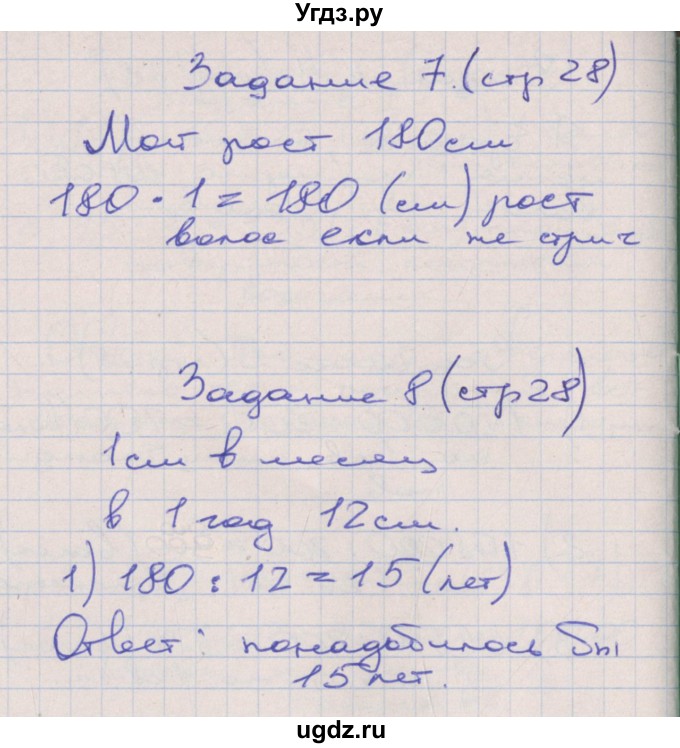 Угдз.ру
Задание 7. (стр 28)
Мой рост 180см
180 · 1 = 180 (см) рост
волос если не стрич
Задание 8 (стр 28)
1см в месяц
в 1 год 12см.
1) 180 : 12 = 15 (лет)
Ответ: понадобилось бы
15 лет.
ugdz.ru